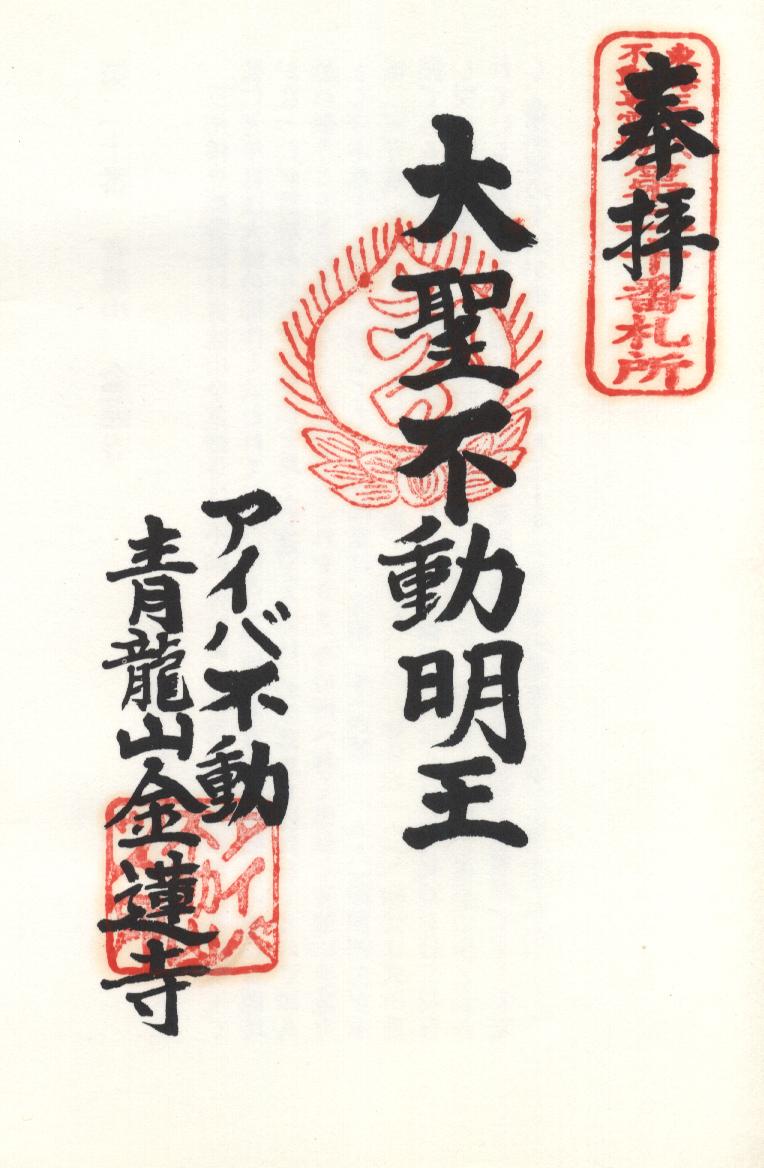 奉拝
番札所
大聖不動明王
アイバ不動
青龍山金蓮寺